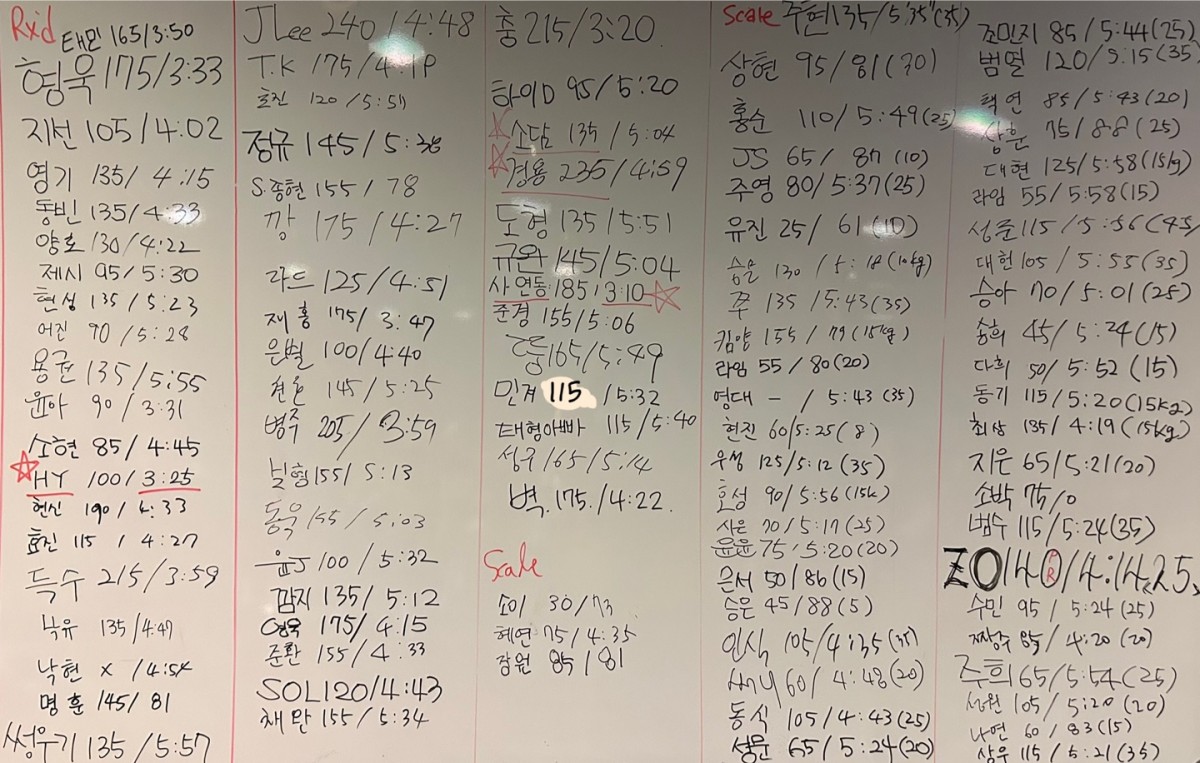 Rx'd
태민 165/3:50
형욱 175/3:33
지선 105/4:02
영기 135/4:15
동빈 135/4:33
양호 130/4:22
제시 95/5:30
현성 135/5:23
어진 90/5:28
용권 135/5:55
윤아 90/3:31
소현 85/4:45
☆ HY 100/3:25
현신 190/4:33
효진 115/4:27
득수 215/3:59
낙유 135/4:47
낙현 x /4:54
명훈 145/81
썽우기 135/5:57
JLee 240/4:48
T.K 175/
효진 120/5:51
정규 145/5:38
S.종현 155/78
깡 175/4:27
라드 125/4:51
재홍 175/3:47
은별 100/4:40
145/5:25
병주 205/3:59
155/5:13
동욱 155/5:03
윤J 100/5:32
깜지 135/5:12
영욱 175/4:15
준환 155/4:33
SOL 120/4:43
채만 155/5:34
충 215/3:20
하이D 95/5:20
☆ 소담 135/5:04
☆ 경용 235/4:59
도형 135/5:51
규완 145/5:04
사연동 185/3:10 ☆
준경 155/5:06
165/5:49
민겨 115/5:32
태형아빠 115/5:40
성구 165/5:14
벽. 175./4:22.
Scale
소이 30/73
혜연 75/4:35
잠원 85/81
Scale 주현 135/5'35"(35)
상현 95/81(70)
홍순 110/5:49(25)
JS 65/87(10)
주영 80/5:37(25)
유진 25/61(10)
승운 130/5:18(10kg)
주 135/5:43(35)
킴양 155/79(15kg)
라임 55/80(20)
영대 - /5:43(35)
현진 60/5:25(8)
우성 125/5:12(35)
호성 90/5:56(15k)
사은 70/5:17(25)
윤윤 75/5:20(20)
은서 50/86(15)
승은 45/88(5)
인식 105/4:35(35)
써니 60/4:48(20)
동식 105/4:43(25)
성윤 65/5:24(20)
조민지 85/5:44(25)
범열 120/5:15(35)
택연 85/5:43(20)
상훈 75/88(25)
대현 125/5:58(15kg)
라임 55/5:58(15)
성준 115/5:56(45)
대헌 105/5:55(35)
승아 70/5:01(25)
송희 45/5:24(15)
다희 50/5:52(15)
동기 115/5:20(15kg)
최상 135/4:19(15kg)
지은 65/5:21(20)
소박 75/0
범수 115/5:24(35)
ZO 140 PR/4:14.25.
수민 95/5:24(25)
짜장수 85/4:20(20)
주희 65/5:54(25)
상원 105/5:20(20)
나연 60/83(15)
상우 115/5:21(35)